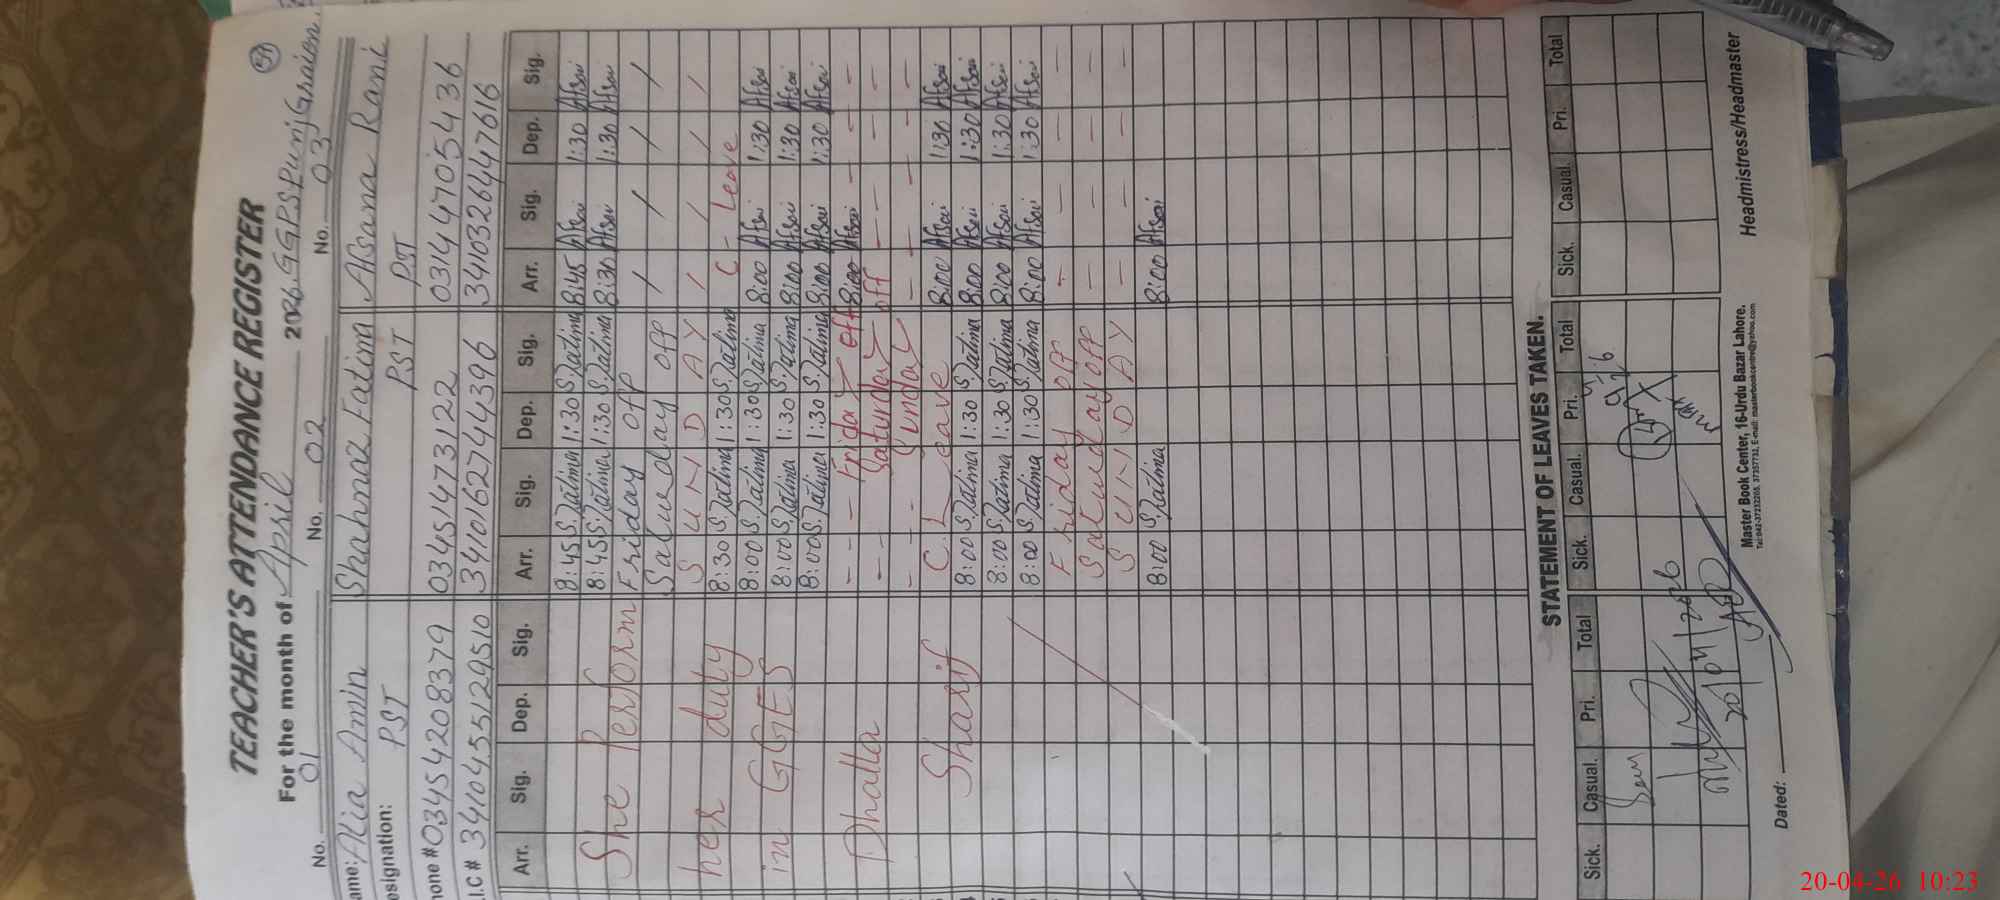 59
TEACHER'S ATTENDANCE REGISTER
For the month of April 2026. GGPS Purni Graion.
No. 01 No. 02 No. 03
ame: Alia Amin Shahnaz Fatima Afsana Rani
esignation: PST PST PST
hone # 03454208379 03451473122 03144705436
.I.C # 3410455129510 3410162744396 3410326447616
Arr. Sig. Dep. Sig. Arr. Sig. Dep. Sig. Arr. Sig. Dep. Sig.
8:45 S.Fatima 1:30 S.Fatima 8:45 Afsai 1:30 Afsai
She Perform 8:45 S.Fatima 1:30 S.Fatima 8:30 Afsai 1:30 Afsai
Friday off / / / /
Satueday off / / / /
her duty S U N D A Y / / / /
8:30 S.Fatima 1:30 S.Fatima C - Leave
in GGES 8:00 S.Fatima 1:30 S.Fatima 8:00 Afsai 1:30 Afsai
8:00 S.Fatima 1:30 S.Fatima 8:00 Afsai 1:30 Afsai
8:00 S.Fatima 1:30 S.Fatima 8:00 Afsai 1:30 Afsai
Dhalla - - - Friday off 8:00 Afsai - -
- - Saturday off - - - -
- - - Sunday - - - -
Sharif C. Leave 8:00 Afsai 1:30 Afsai
8:00 S.Fatima 1:30 S.Fatima 8:00 Afsai 1:30 Afsai
8:00 S.Fatima 1:30 S.Fatima 8:00 Afsai 1:30 Afsai
8:00 S.Fatima 1:30 S.Fatima 8:00 Afsai 1:30 Afsai
Friday off - - - -
Satudayoff - - - -
S U N D A Y - - - -
8:00 S.Fatima 8:00 Afsai
STATEMENT OF LEAVES TAKEN.
Sick. Casual. Pri. Total Sick. Casual. Pri. Total Sick. Casual. Pri. Total
20/04/2026
Dated:
Headmistress/Headmaster
Master Book Center, 16-Urdu Bazar Lahore.
20-04-26 10:23